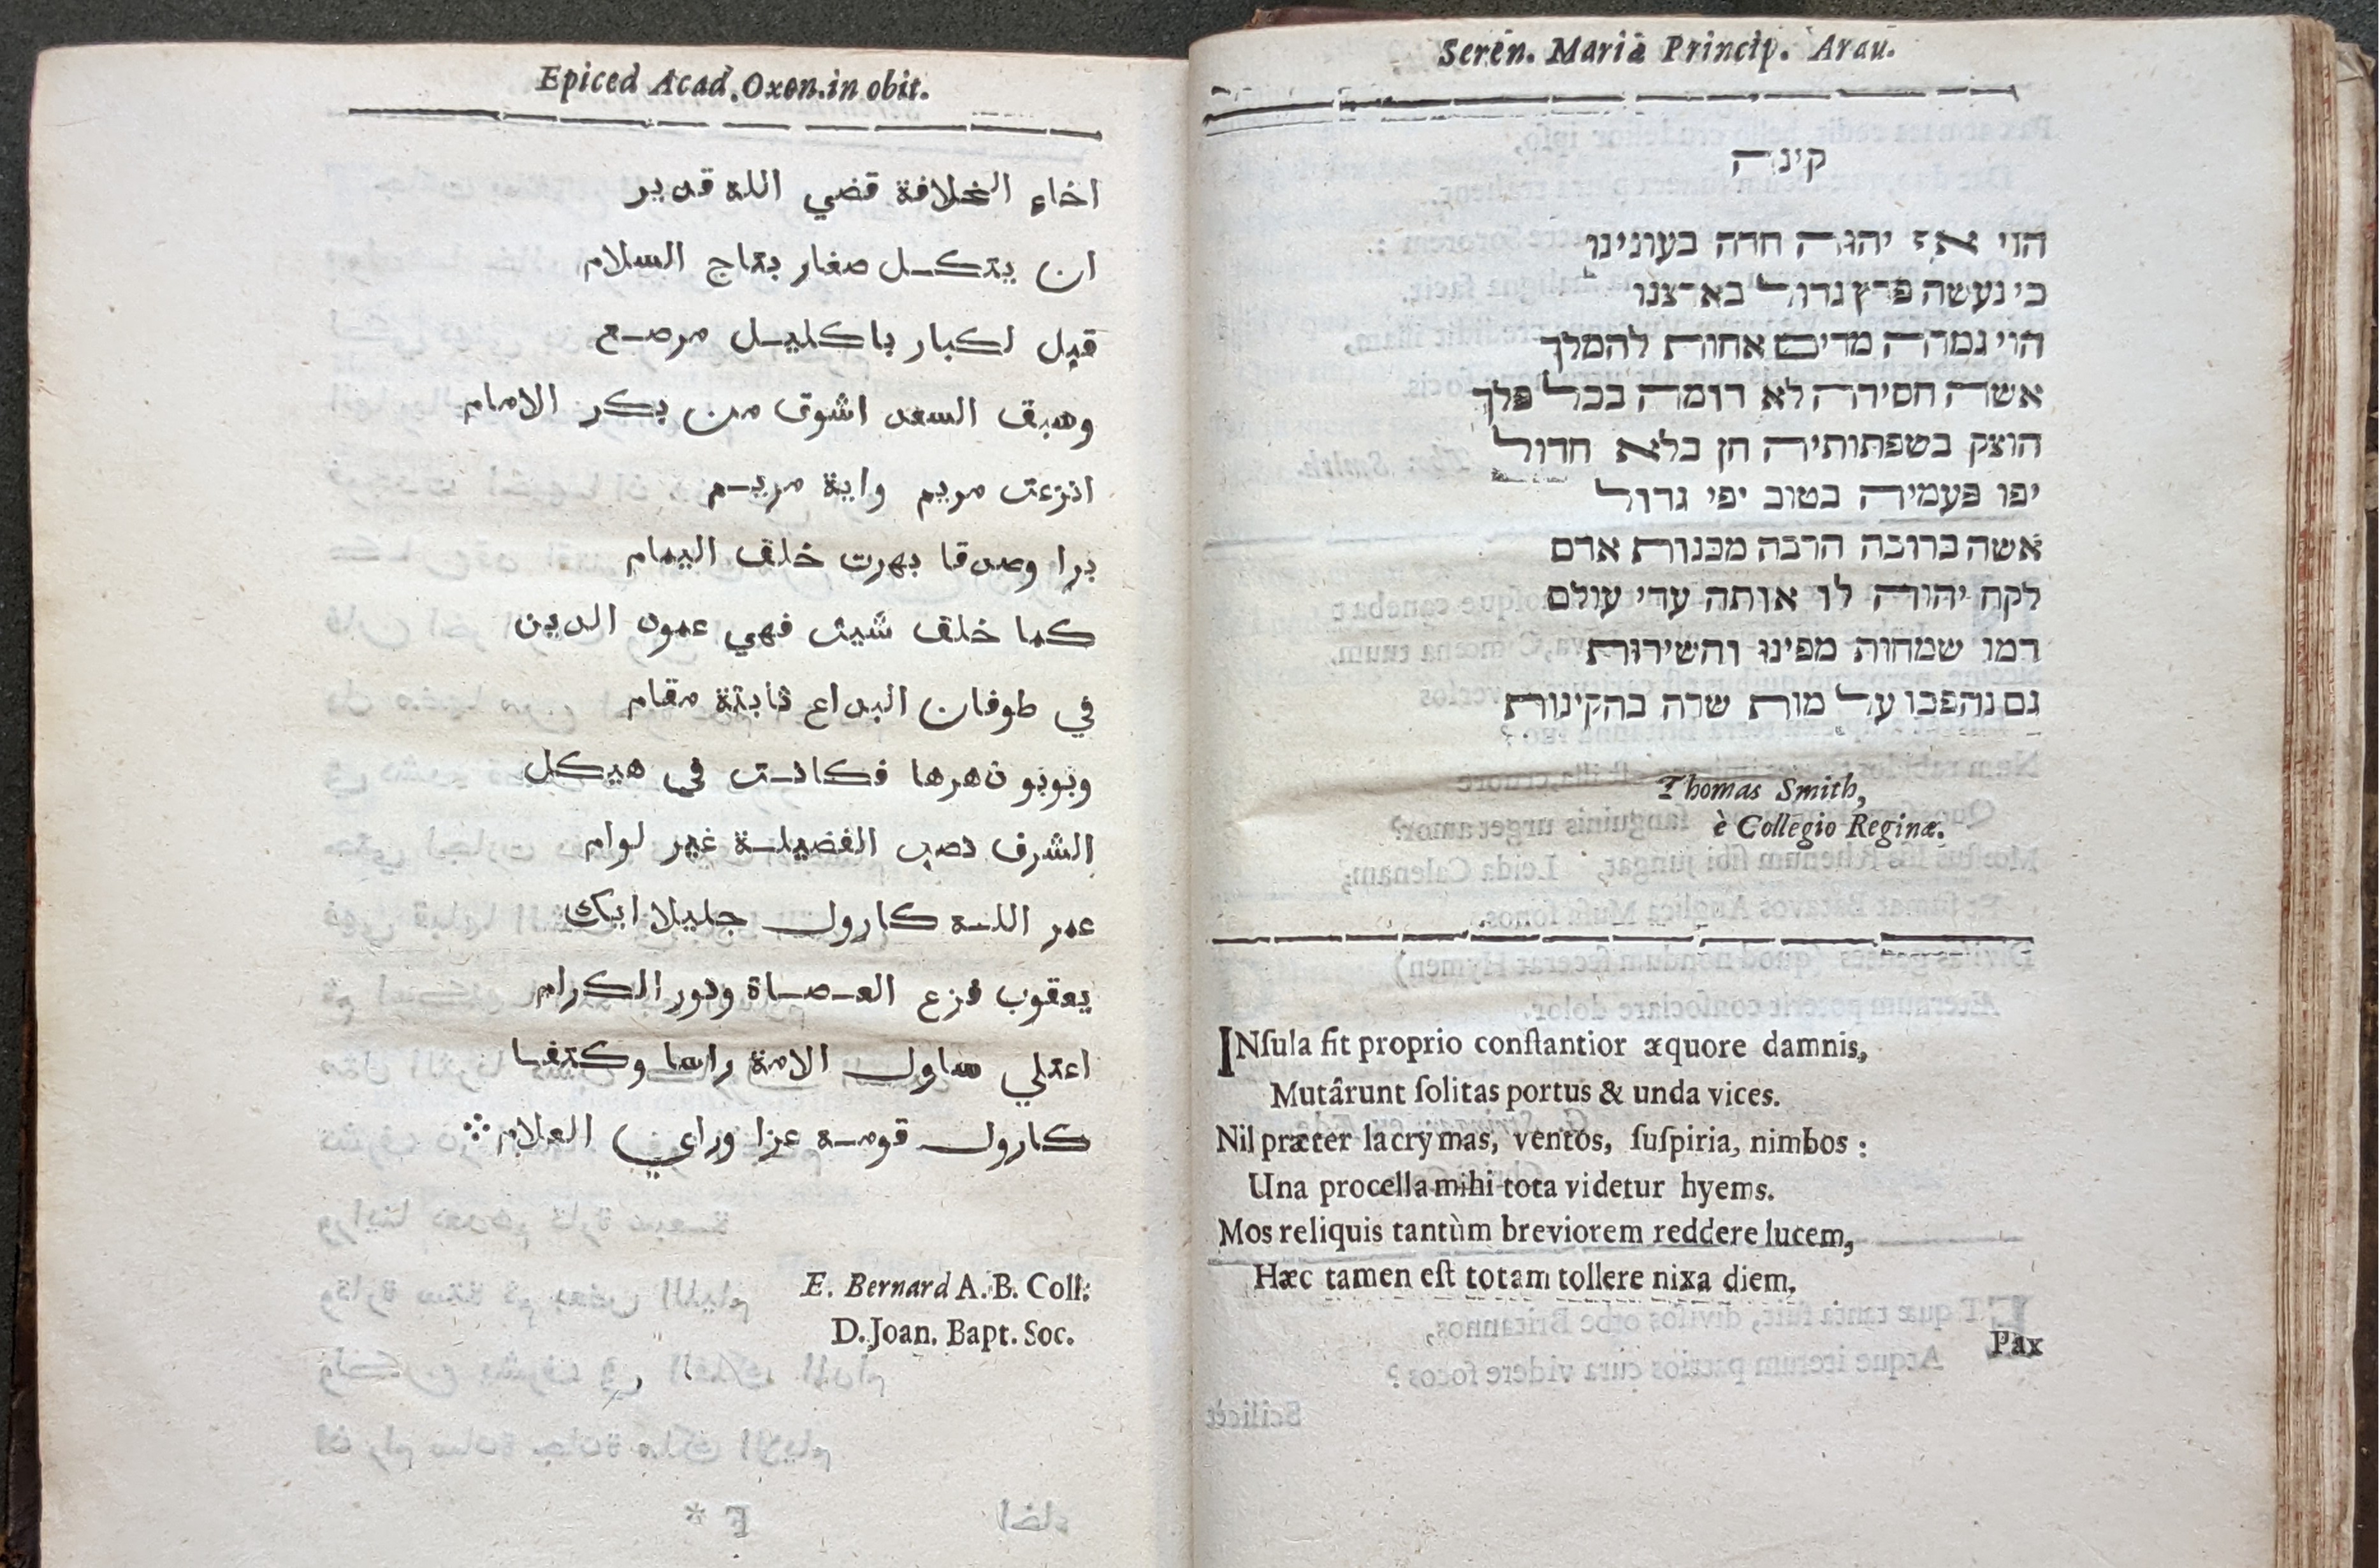 Epiced Acad. Oxon. in obit.
اخاء الخلافة قضي الله قدير
ان يتكـل صغار بتاج السلام
قبل لكبار باكليـل مرصـع
وسبق السعد اشوق من بكر الامام
انزعت مريم واية مريـم
برا وصدقا بهرت خلق اليمام
كما خلق شيث فهي عمود الدين
في طوفان البداع ثابتة مقام
فكانـت في هيكل
الشرف نصب الفضيلـة غير لوام
عمر اللـه كارول جليلا ايكك
يعقوب فزع العـصـاة ونور الكرام
اعتلي ساول الامة راسا وكتفـا
كارول قومـه عزا وراعي العلام
E. Bernard A.B. Coll:
D. Joan. Bapt. Soc.
Serén. Mariâ Princip. Arau.
קינה
הוי אף יהוה חרה בעונינו
כי נעשה פרץ גדול בארצנו
הוי גמרה מרים אחות להמלך
אשה חסידה לא דומה בכל פלך
הוצק בשפתותיה חן בלא חדול
יפו פעמיה בטוב יפי גדול
אשה ברובה הרבה מבנות אדם
לקח יהוה לו אותה עדי עולם
דמו שמחות מפינו והשירות
גם נהפכו על מות שרה בהקינות
Thomas Smith,
è Collegio Reginæ.
INſula fit proprio conſtantior æquore damnis,
Mutârunt ſolitas portus & unda vices.
Nil præter lacrymas, ventos, ſuſpiria, nimbos :
Una procella mihi tota videtur hyems.
Mos reliquis tantùm breviorem reddere lucem,
Hæc tamen eſt totam tollere nixa diem.
Pax